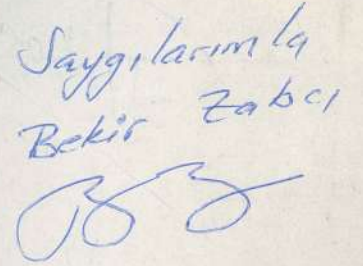 Saygılarımla
Bekir Zabcı